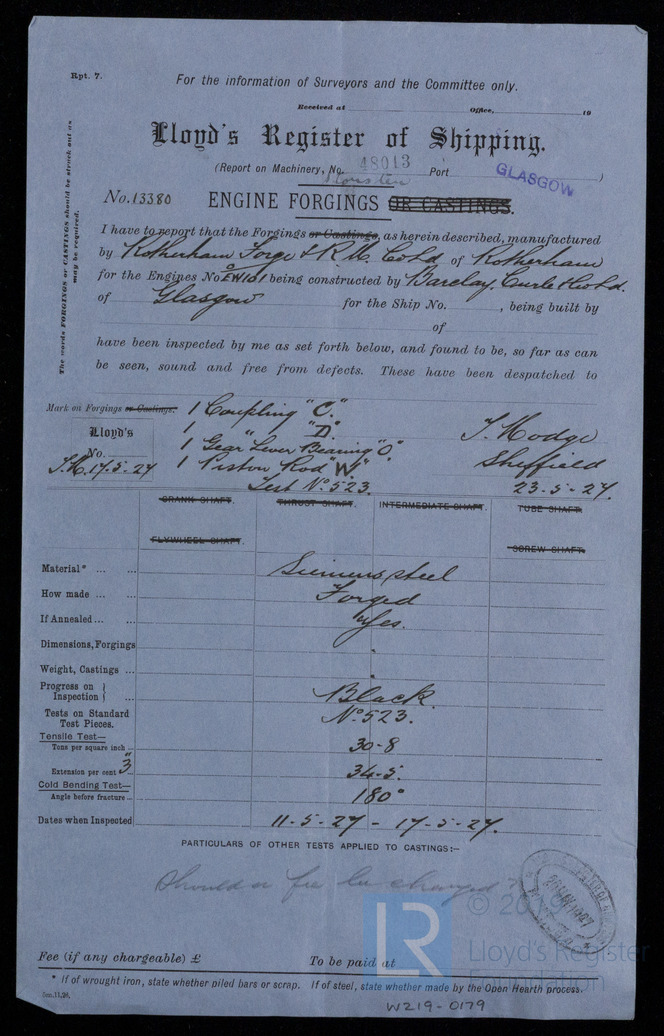 Rpt. 7.
For the information of Surveyors and the Committee only.
Received at Office, 19
Lloyd's Register of Shipping.
(Report on Machinery, No. 48013 Port GLASGOW)
No. 13380 ENGINE FORGINGS OR CASTINGS.
The words FORGINGS or CASTINGS should be struck out as may be required.
I have to report that the Forgings or Castings, as herein described, manufactured
by Rotherham Forge & R.M. Co Ltd of Rotherham
for the Engines No EW101 being constructed by Barclay, Curle & Co Ltd.
of Glasgow for the Ship No. , being built by
of
have been inspected by me as set forth below, and found to be, so far as can
be seen, sound and free from defects. These have been despatched to
Mark on Forgings or Castings. 1 Coupling "C".
Lloyd's 1 "D". J. Hodge
No. 1 Gear Lever Bearing "O". Sheffield
J.H. 17-5-27 1 Piston Rod "W"
Test No. 523. 23-5-27.
CRANK SHAFT. THRUST SHAFT. INTERMEDIATE SHAFT. TUBE SHAFT.
FLYWHEEL SHAFT. SCREW SHAFT.
Material* ... ... Siemens steel
How made ... ... Forged
If Annealed ... ... Yes.
Dimensions, Forgings
Weight, Castings ...
Progress on Inspection ... Black.
Tests on Standard Test Pieces. No. 523.
Tensile Test—
Tons per square inch ... 30-8
Extension per cent 3" 34-5.
Cold Bending Test—
Angle before fracture ... 180°
Dates when Inspected 11-5-27 - 17-5-27.
PARTICULARS OF OTHER TESTS APPLIED TO CASTINGS:—
Should a fee be charged?
© 2019
Lloyd's Register
Foundation
LR
Fee (if any chargeable) £ To be paid at
* If of wrought iron, state whether piled bars or scrap. If of steel, state whether made by the Open Hearth process.
W219-0179